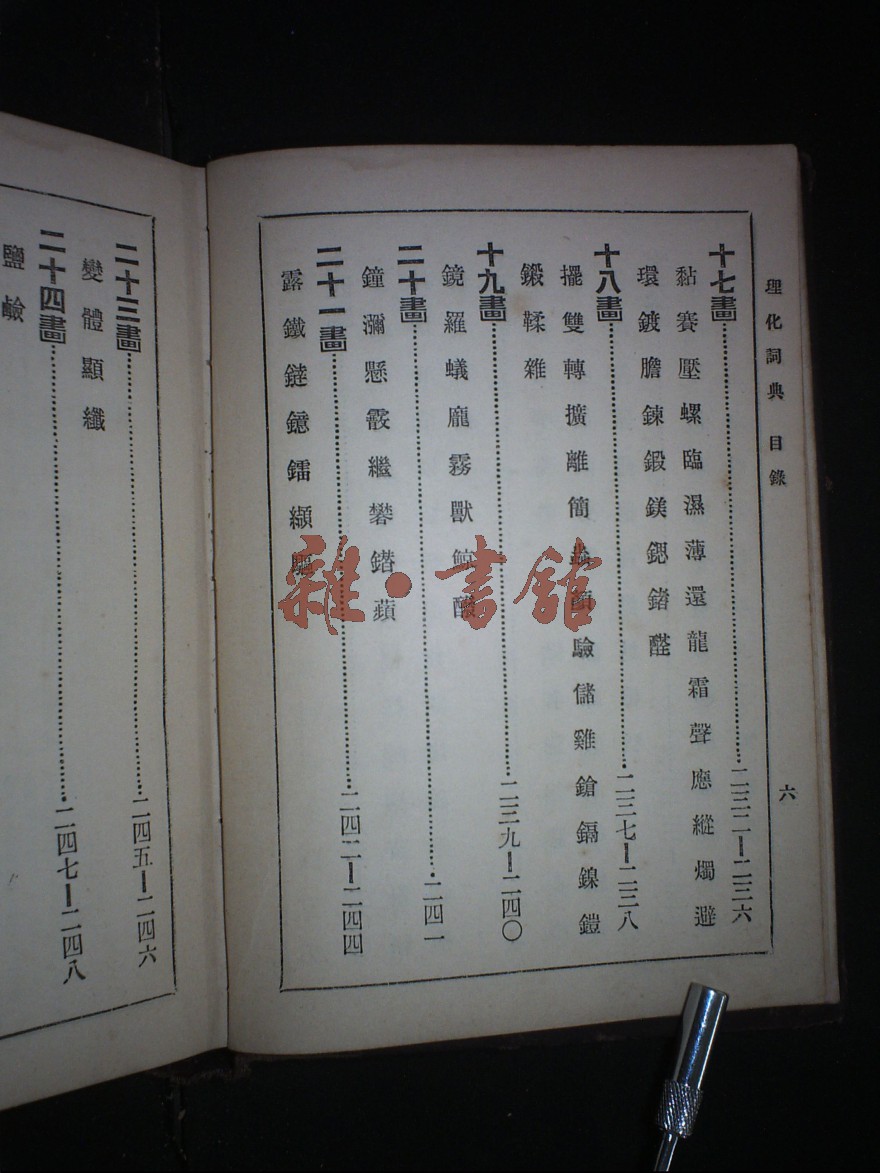 理化詞典 目錄 六
十七畫……二三二—二三六
黏賽壓螺臨濕薄還龍霜聲應縱燭避
環鍍膽鍊鍛鎂鍶鍺醛
十八畫……二三七—二三八
擺雙轉擴離簡蟲顏驗儲雞鎗鎘鎳鎧
鍛鞣雜
十九畫……二三九—二四〇
鏡羅蟻龐霧獸鯨醱
二十畫……二四一
鐘瀰懸霰繼礬鐠蘋
二十一畫……二四二—二四四
露鐵鐽鐿鐳纈驅
二十三畫……二四五—二四六
變體顯纖
二十四畫……二四七—二四八
鹽鹼
雜·書館